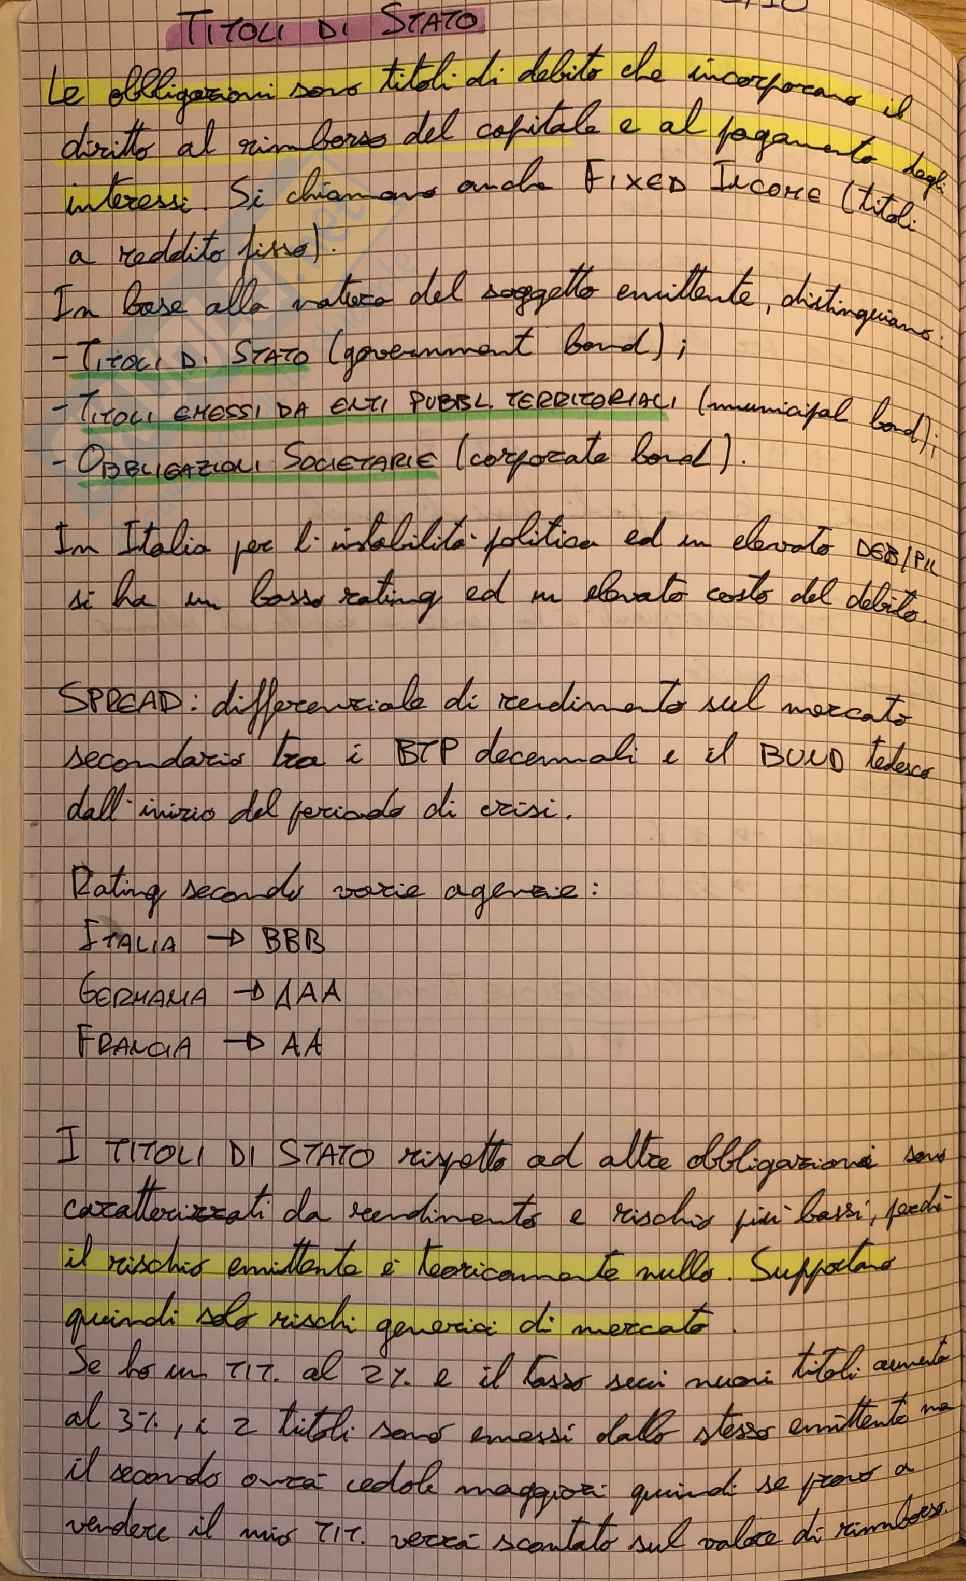 /10
TITOLI DI STATO
Le obbligazioni sono titoli di debito che incorporano il
diritto al rimborso del capitale e al pagamento degli
interessi. Si chiamano anche FIXED INCOME (titoli
a reddito fisso).
In base alla natura del soggetto emittente, distinguiamo:
- TITOLI DI STATO (government bond);
- TITOLI EMESSI DA ENTI PUBBL. TERRITORIALI (municipal bond);
- OBBLIGAZIONI SOCIETARIE (corporate bond).
In Italia per l'instabilità politica ed un elevato DEB/PIL
si ha un basso rating ed un elevato costo del debito.
SPREAD: differenziale di rendimento sul mercato
secondario tra i BTP decennali e il BUND tedesco
dall'inizio del periodo di crisi.
Rating secondo varie agenzie:
ITALIA → BBB
GERMANIA → AAA
FRANCIA → AA
I TITOLI DI STATO rispetto ad altre obbligazioni sono
caratterizzati da rendimento e rischio più bassi, perchè
il rischio emittente è teoricamente nullo. Supportano
quindi solo rischi generici di mercato.
Se ho un TIT. al 2% e il tasso sui nuovi titoli aumenta
al 3%, i 2 titoli sono emessi dallo stesso emittente ma
il secondo avrà cedole maggiori quindi se provo a
vendere il mio TIT. verrà scontato sul valore di rimborso.